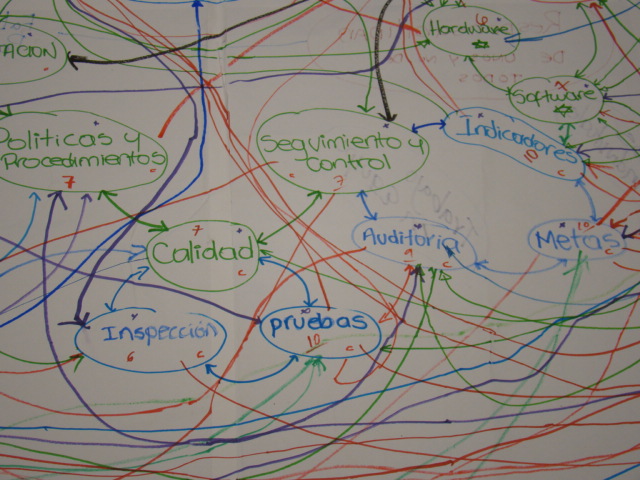 Hardware
6
TACION
Software
x
Indicadores
10 c
Políticas y
Procedimientos
7
c
Seguimiento y
control
7
c
Auditoria
9 c
10
Metas
c
7
Calidad
c
Inspección
6 c
pruebas
10 c